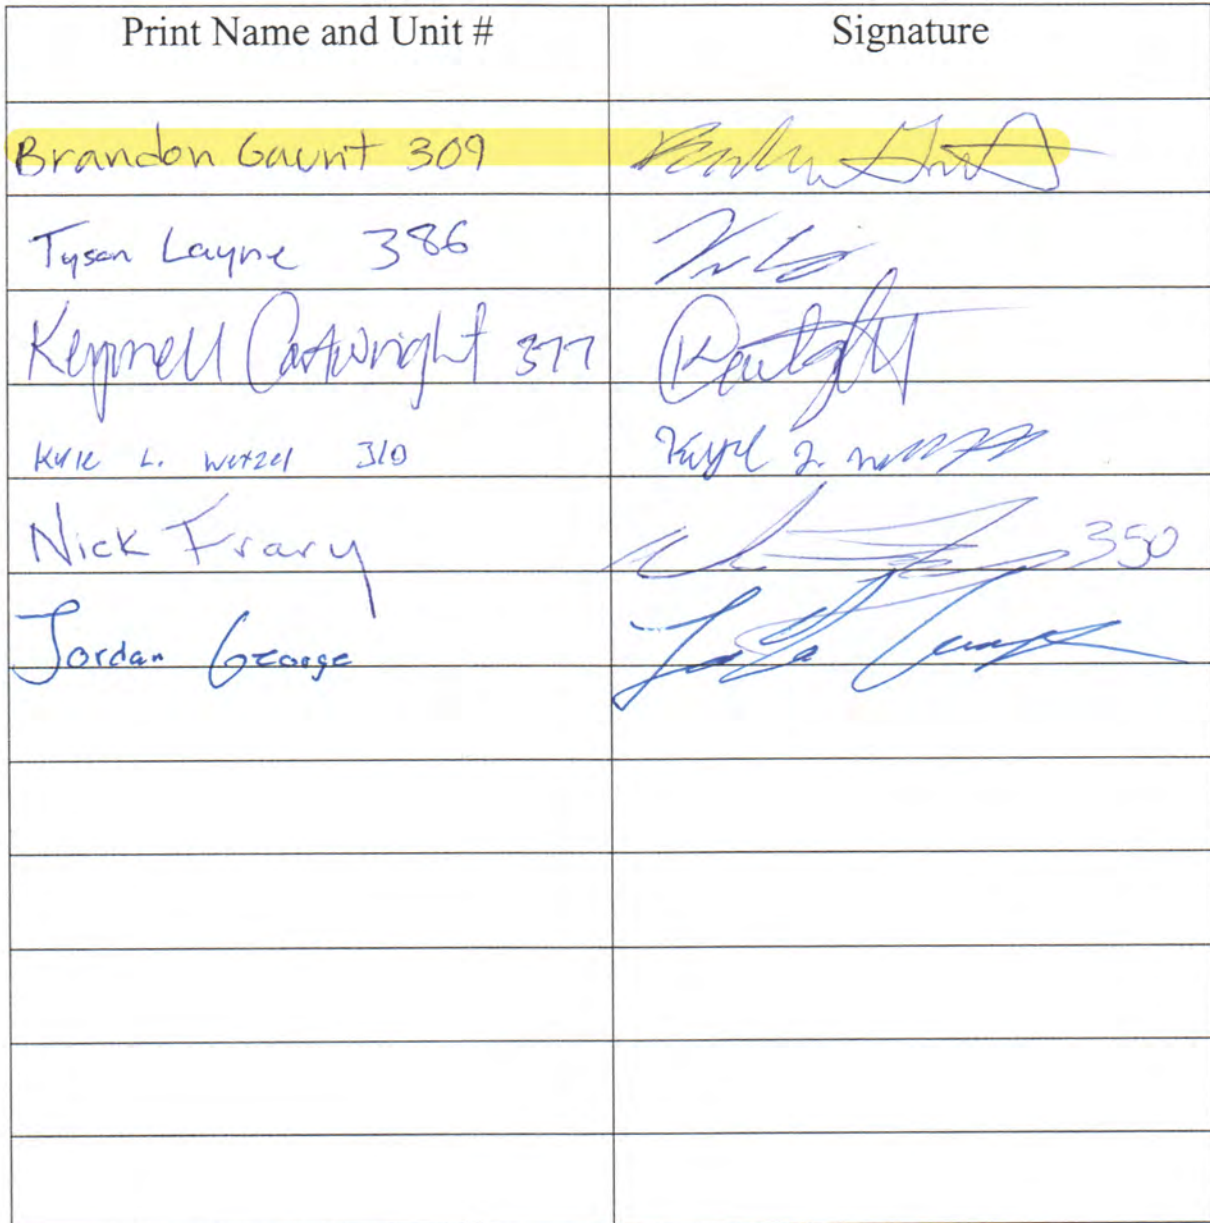 Print Name and Unit # Signature
Brandon Gaunt 309
Tyson Layne 386
Keynnell Cartwright 377
Kyle L. Wetzel 310
Nick Frary 350
Jordan George